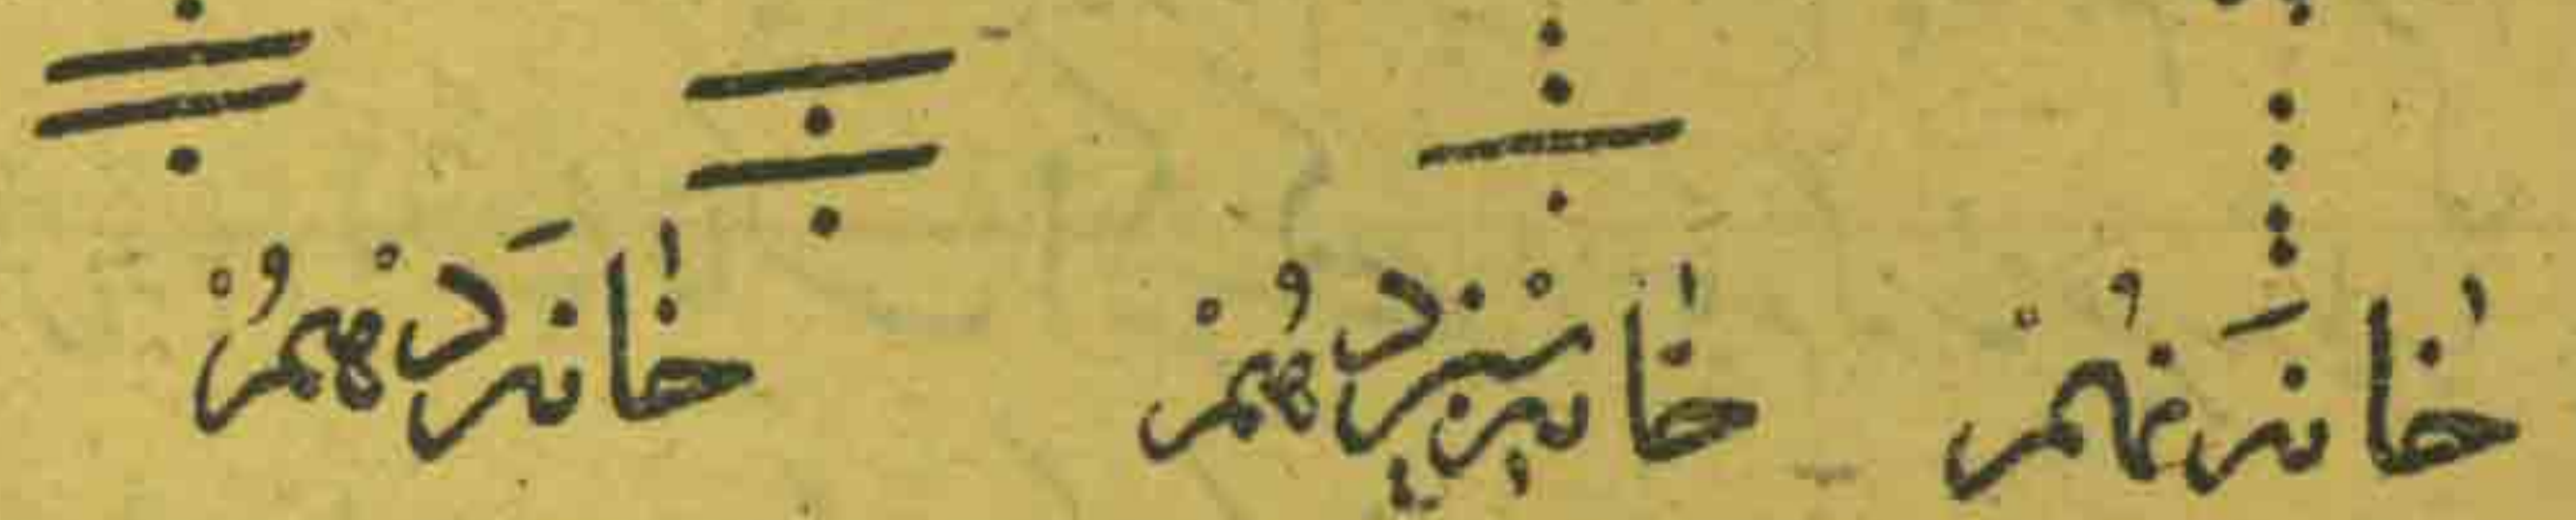 خانَه نهُمْ خانهِ سْیزدهُمْ خانَه دْهمُْ